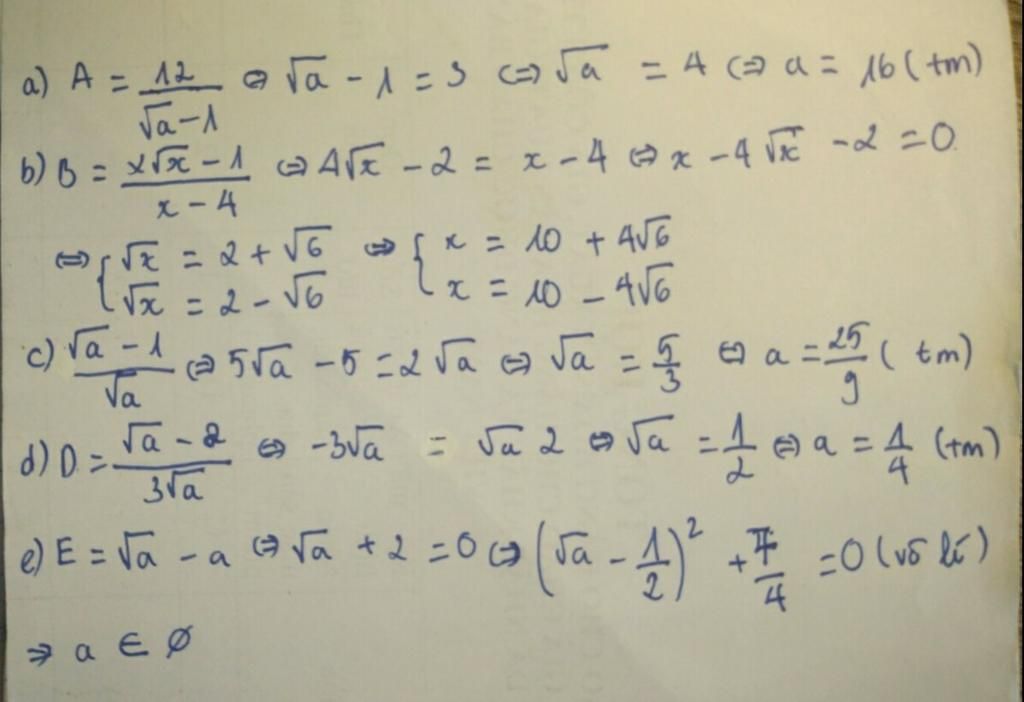 a) A = 12/(√a − 1) ⇔ √a − 1 = 3 ⇔ √a = 4 ⇔ a = 16 (tm)
b) B = (2√x − 1)/(x − 4) ⇔ 4√x − 2 = x − 4 ⇔ x − 4√x − 2 = 0
⇔ { √x = 2 + √6 ; √x = 2 − √6 ⇔ { x = 10 + 4√6 ; x = 10 − 4√6
c) (√a − 1)/√a ⇔ 5√a − 5 = 2√a ⇔ √a = 5/3 ⇔ a = 25/9 (tm)
d) D = (√a − 2)/(3√a) ⇔ −3√a = √a 2 ⇔ √a = 1/2 ⇔ a = 1/4 (tm)
e) E = √a − a ⇔ √a + 2 = 0 ⇔ (√a − 1/2)² + 7/4 = 0 (vô lí)
⇒ a ∈ ∅